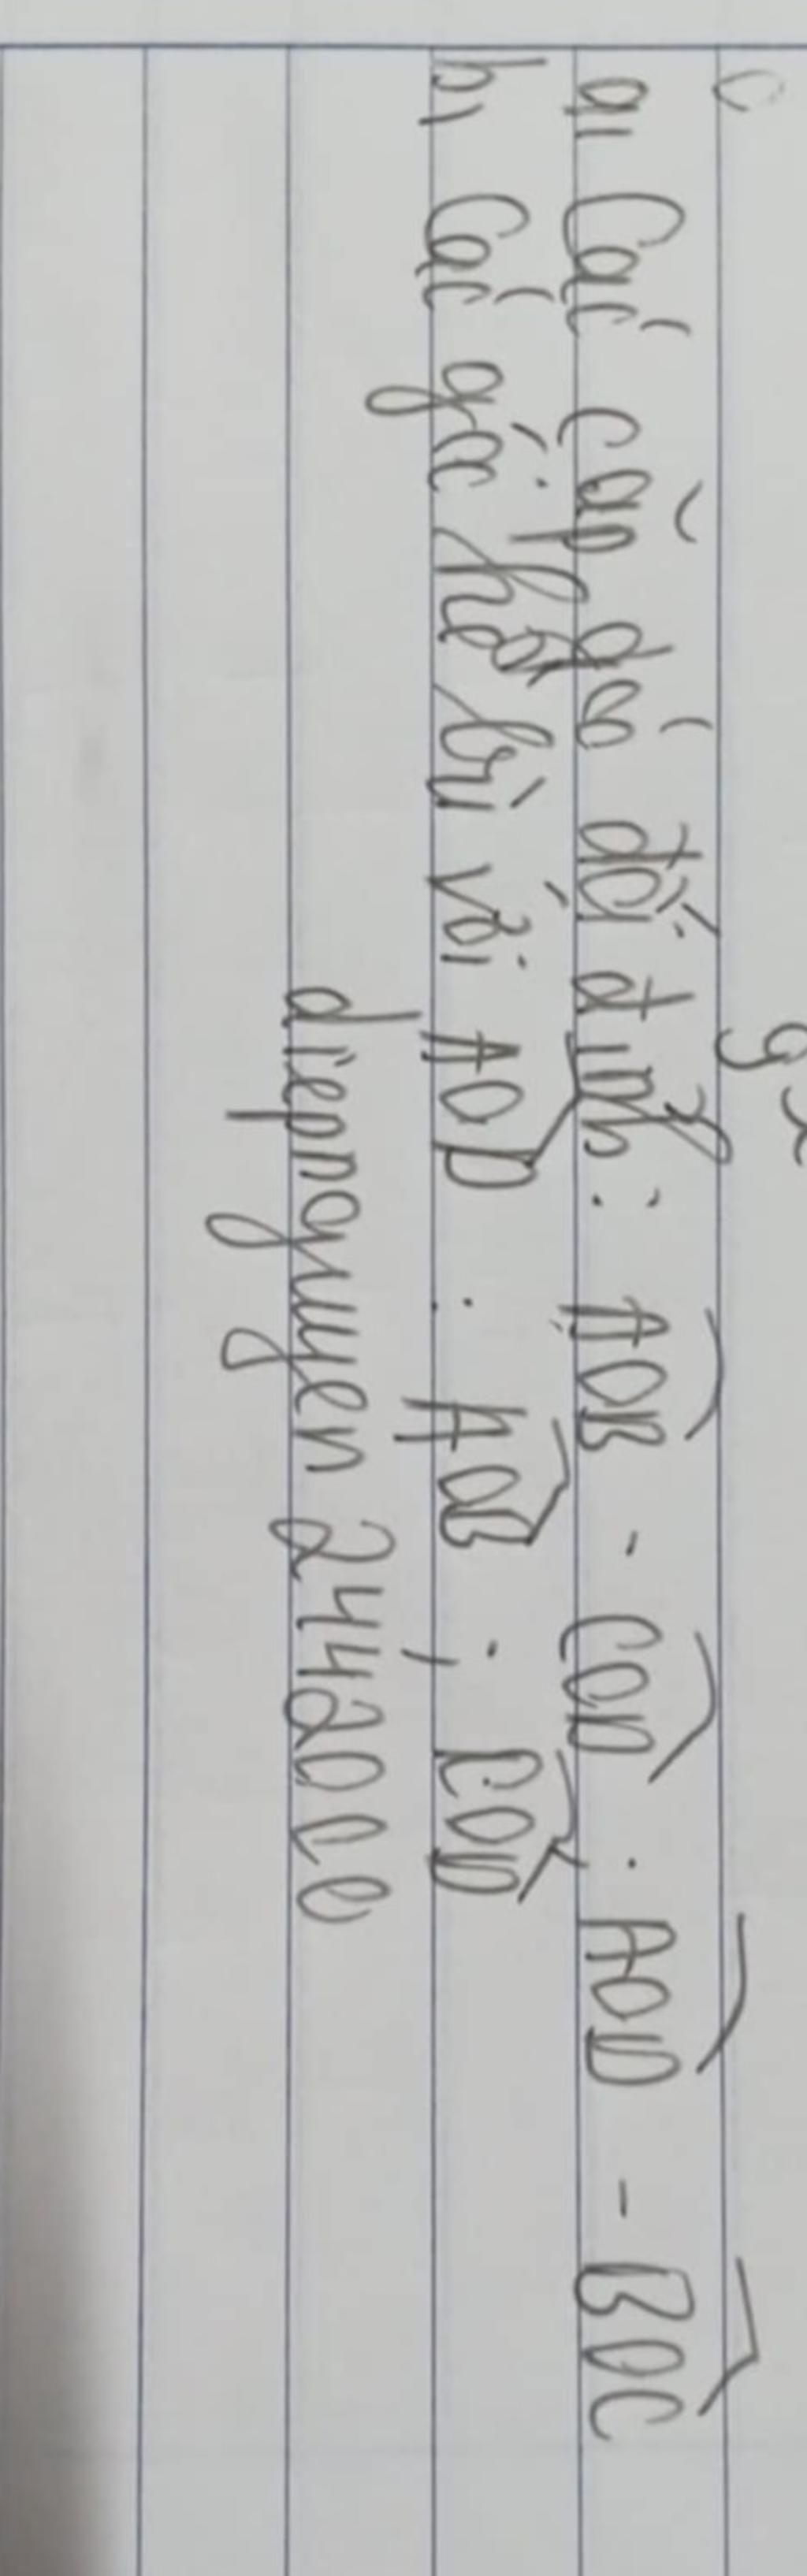 a, Các cặp góc đối đỉnh : AOB - COD . AOD - BOC
b, Các góc kề bù với AOD : AOB ; COD
diepnguyen 244200